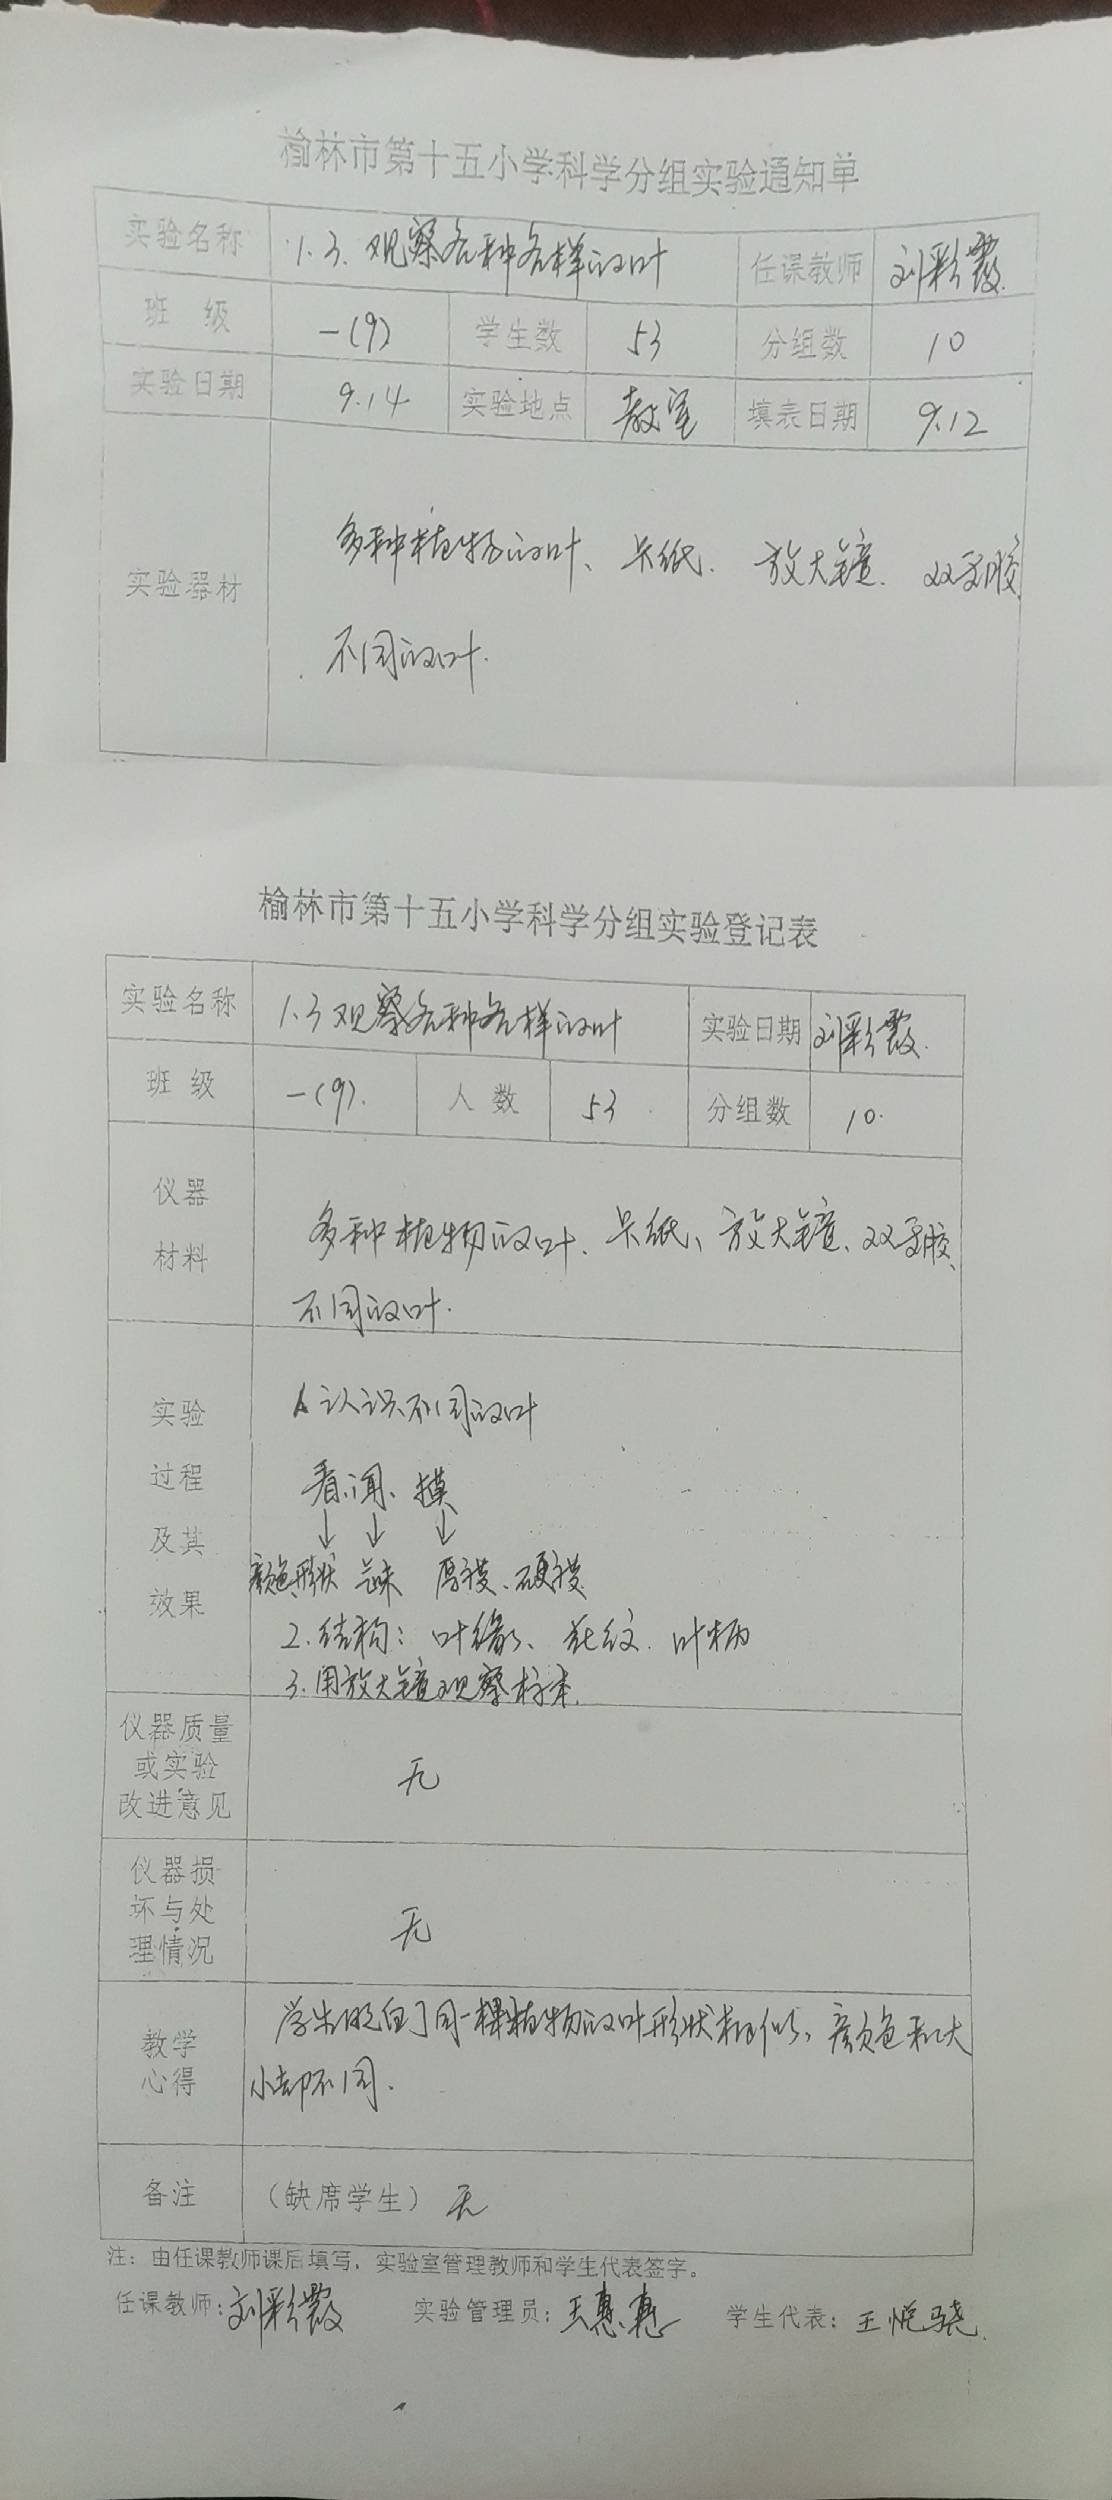 榆林市第十五小学科学分组实验通知单
实验名称 1.3.观察各种各样的叶 任课教师 刘彩霞
班 级 一(9) 学生数 53 分组数 10
实验日期 9.14 实验地点 教室 填表日期 9.12
实验器材 多种植物的叶、卡纸. 放大镜. 双面胶
不同的叶.
榆林市第十五小学科学分组实验登记表
实验名称 1.3 观察各种各样的叶 实验日期 刘彩霞.
班 级 一(9). 人 数 53 分组数 10.
仪器
材料
多种植物的叶、卡纸、放大镜、双面胶、
不同的叶.
实验
过程
及其
效果
1.认识不同的叶
看、闻、摸
↓ ↓ ↓
颜色、形状 气味 厚度、硬度
2.结构: 叶缘、 纹. 叶柄
3.用放大镜观察标本.
仪器质量
或实验
改进意见
无
仪器损
坏与处
理情况
无
教学
心得
学生明白了同一棵植物的叶形状相似、颜色和大
小却不同.
备注 (缺席学生) 无
注: 由任课教师课后填写, 实验室管理教师和学生代表签字。
任课教师: 刘彩霞 实验管理员: 王惠惠 学生代表: 王悦骁.